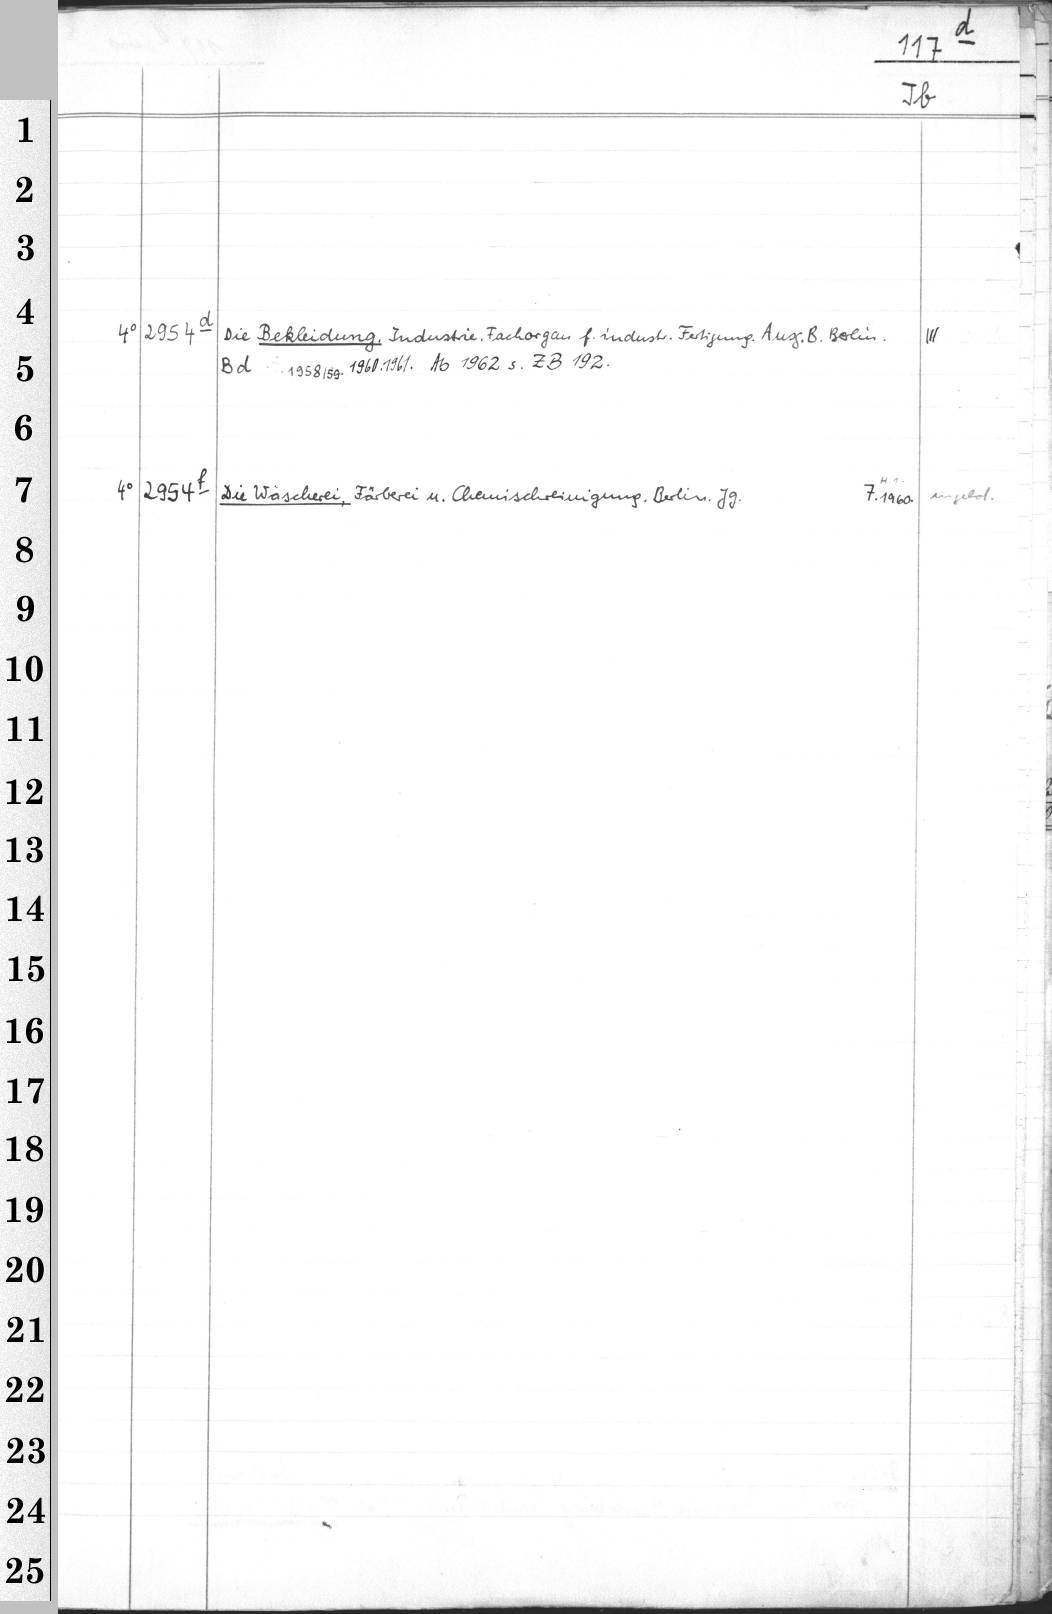 117 d
Jb
1
2
3
4
4° 2954 d Die Bekleidung, Industrie. Fachorgan f. industr. Fertigung. Ausg. B. Berlin. III
5
Bd 1958/59. 1960. 1961. Ab 1962 s. ZB 192.
6
7
4° 2954 f Die Wäscherei, Färberei u. Chemischreinigung. Berlin. Jg. 7. 1960. H. 1. ungebd.
8
9
10
11
12
13
14
15
16
17
18
19
20
21
22
23
24
25